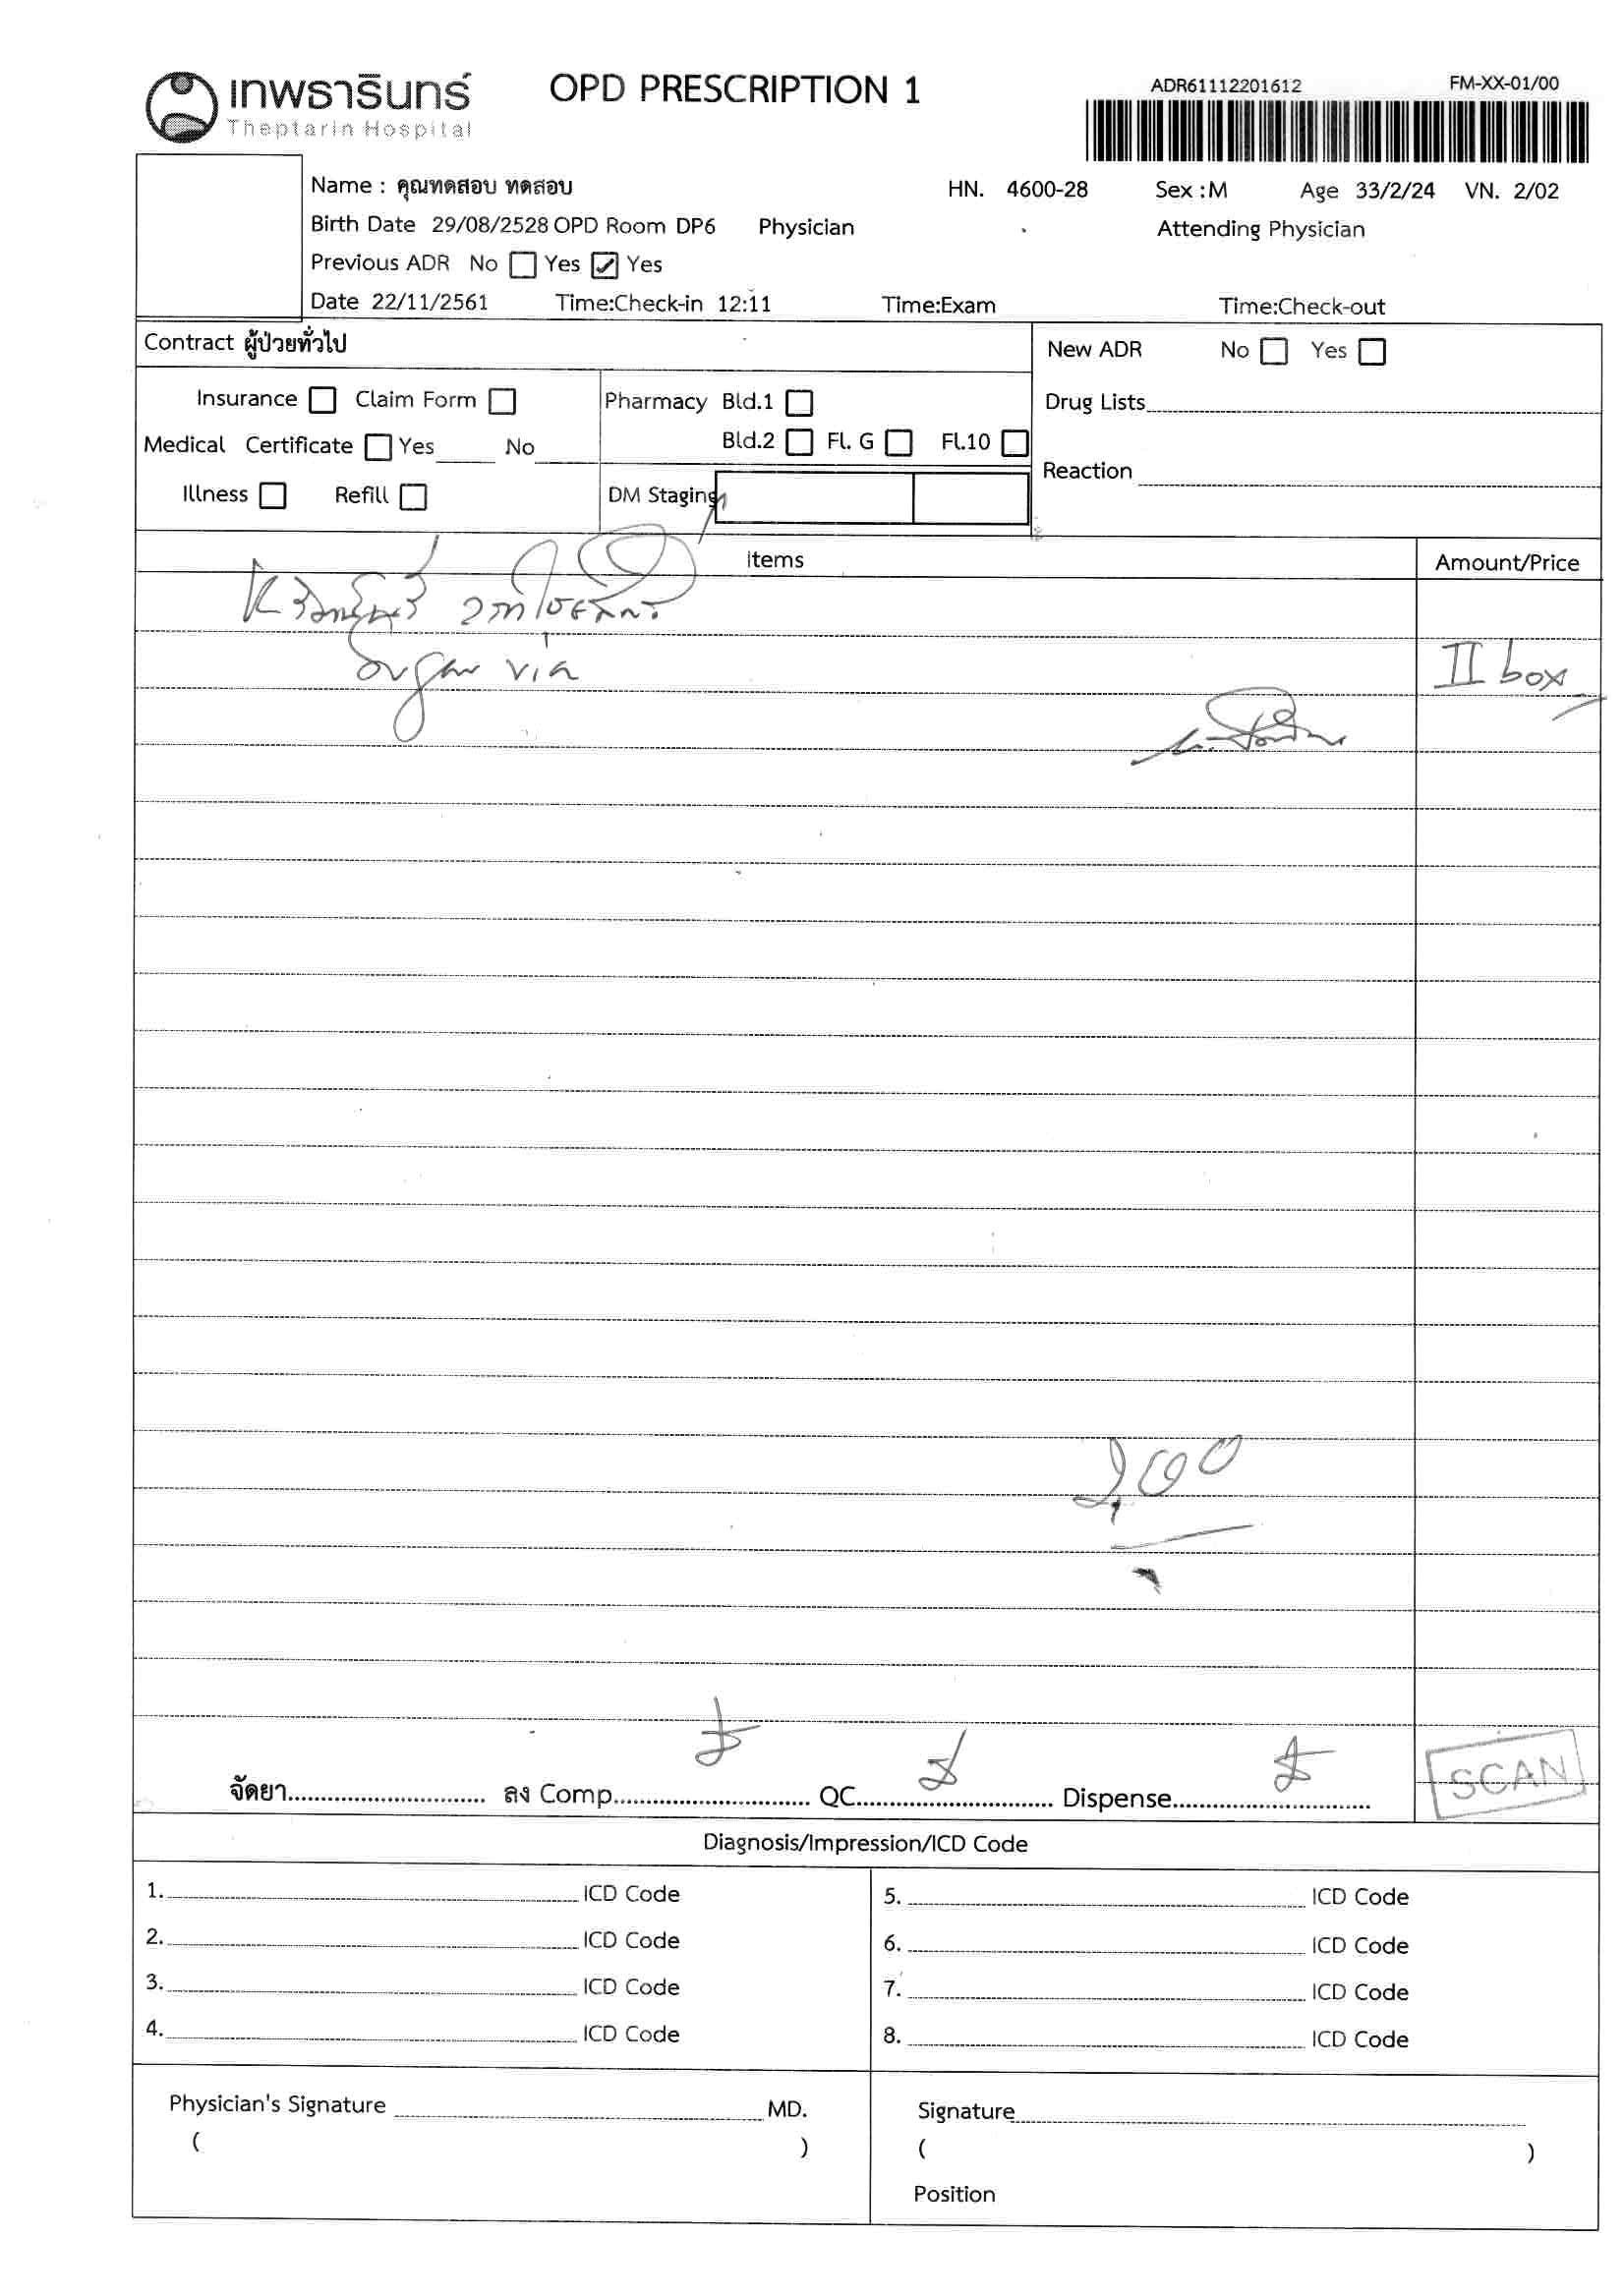 เทพธารินทร์
Theptarin Hospital
OPD PRESCRIPTION 1
ADR61112201612
FM-XX-01/00
Name : คุณทดสอบ ทดสอบ HN. 4600-28 Sex :M Age 33/2/24 VN. 2/02
Birth Date 29/08/2528 OPD Room DP6 Physician Attending Physician
Previous ADR No Yes Yes
Date 22/11/2561 Time:Check-in 12:11 Time:Exam Time:Check-out
Contract ผู้ป่วยทั่วไป
New ADR No Yes
Insurance Claim Form
Pharmacy Bld.1
Drug Lists
Medical Certificate Yes No
Bld.2 Fl. G Fl.10
Reaction
Illness Refill
DM Staging
Items Amount/Price
II box
SCAN
จัดยา ลง Comp QC Dispense
Diagnosis/Impression/ICD Code
1. ICD Code
2. ICD Code
3. ICD Code
4. ICD Code
5. ICD Code
6. ICD Code
7. ICD Code
8. ICD Code
Physician's Signature MD.
( )
Signature
( )
Position